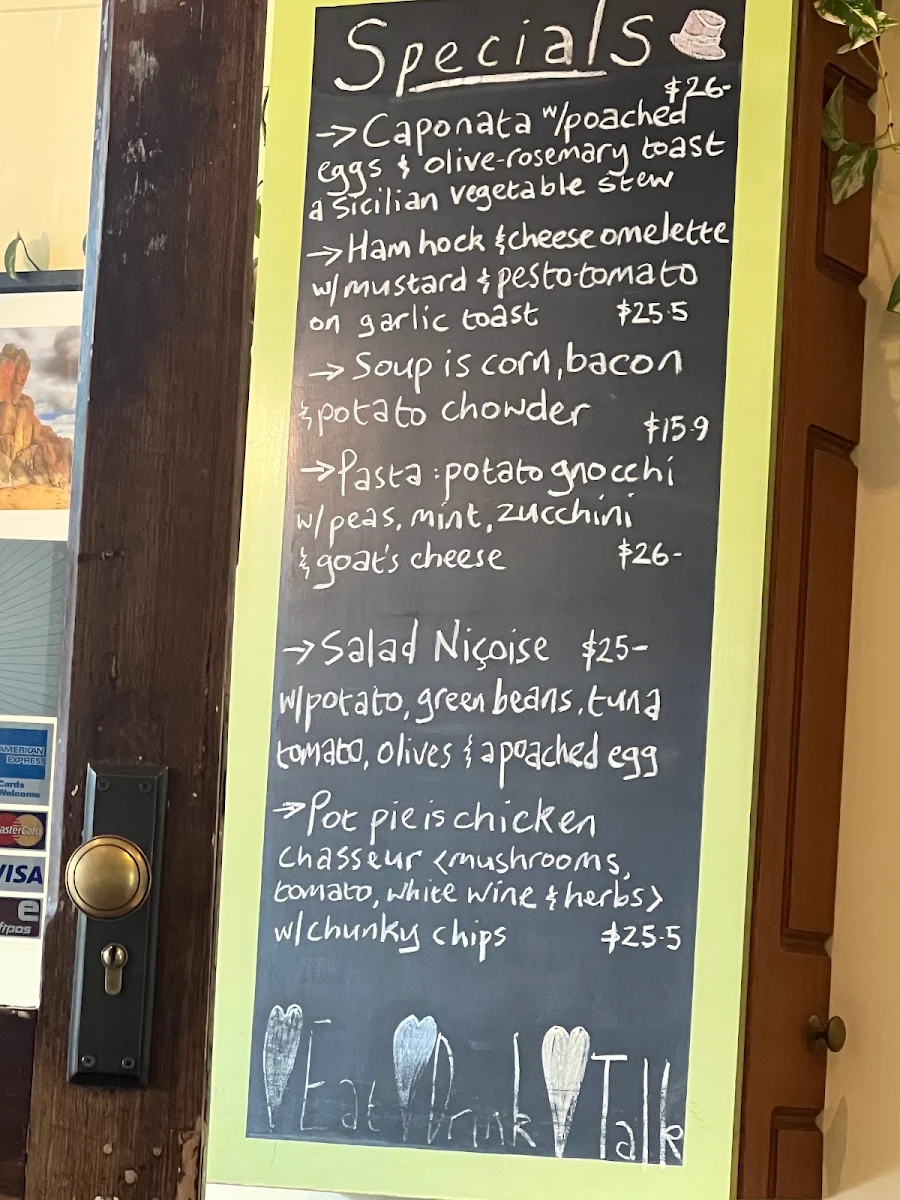 Specials
$26-
→Caponata w/poached
eggs & olive-rosemary toast
a Sicilian vegetable stew
→Ham hock & cheese omelette
w/mustard & pesto-tomato
on garlic toast $25.5
→Soup is corn, bacon
& potato chowder
$15.9
→Pasta: potato gnocchi
w/peas, mint, zucchini
& goat's cheese $26-
→Salad Niçoise $25-
w/potato, green beans, tuna
tomato, olives & a poached egg
→Pot pie is chicken
chasseur <mushrooms,
tomato, white wine & herbs>
w/chunky chips $25.5
Eat Drink Talk
AMERICAN
EXPRESS
Cards
Welcome
MasterCard
VISA
e
ftpos